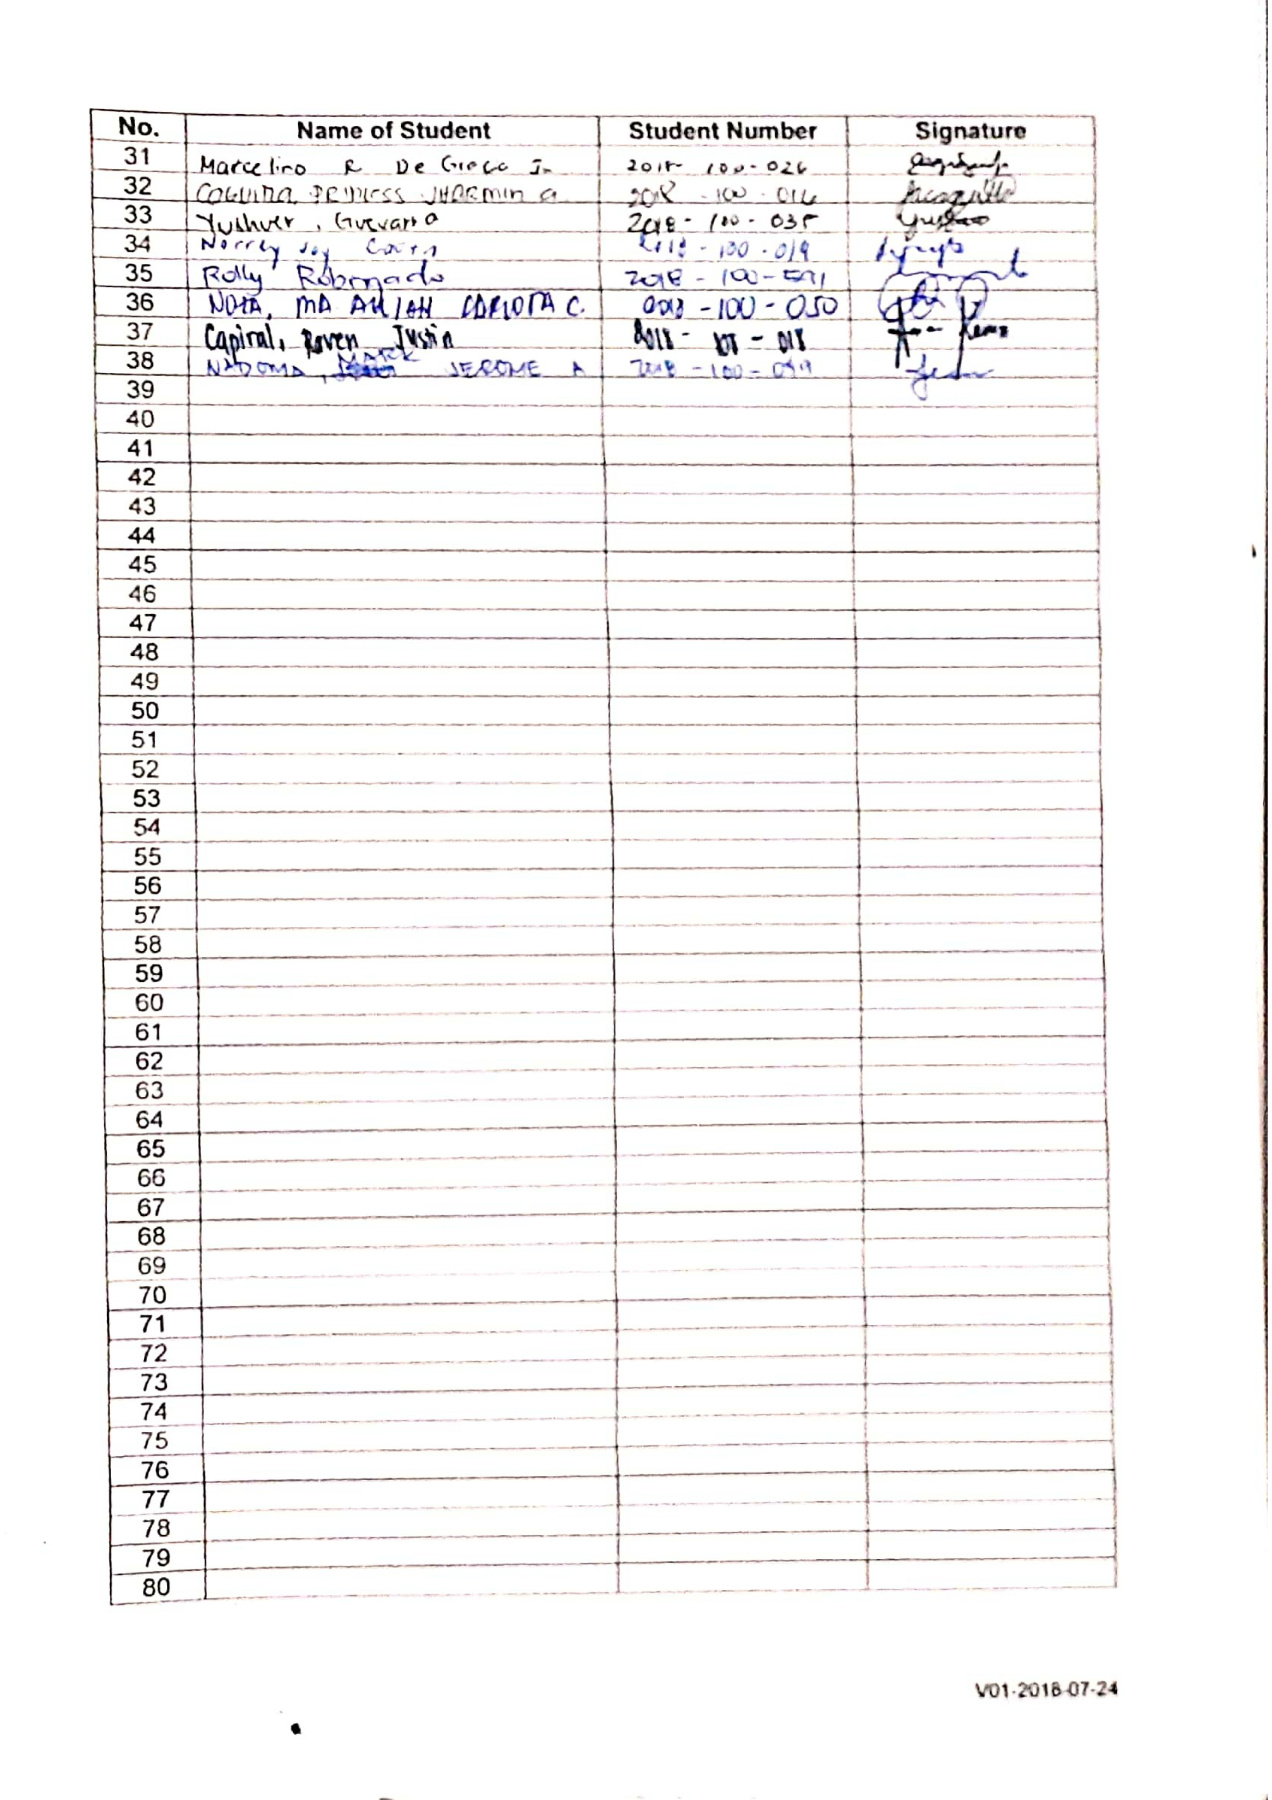 No. Name of Student Student Number Signature
31 Marcelino R De Gracia Jr 2018 100-026
32 PRINCESS JHARMIN G 2018 -100 -016
33 Yushver, Guevarra 2018-100-035
34 Joy 2018-100-019
35 Rolly Robornado 2018-100-591
36 NORA, MA CARLOTA C. 2018-100-050
37 Capiral, Roven Justin 2018- - 018
38 NADOMA, MARK JEROME A 2018-100-
39
40
41
42
43
44
45
46
47
48
49
50
51
52
53
54
55
56
57
58
59
60
61
62
63
64
65
66
67
68
69
70
71
72
73
74
75
76
77
78
79
80
V01-2018-07-24